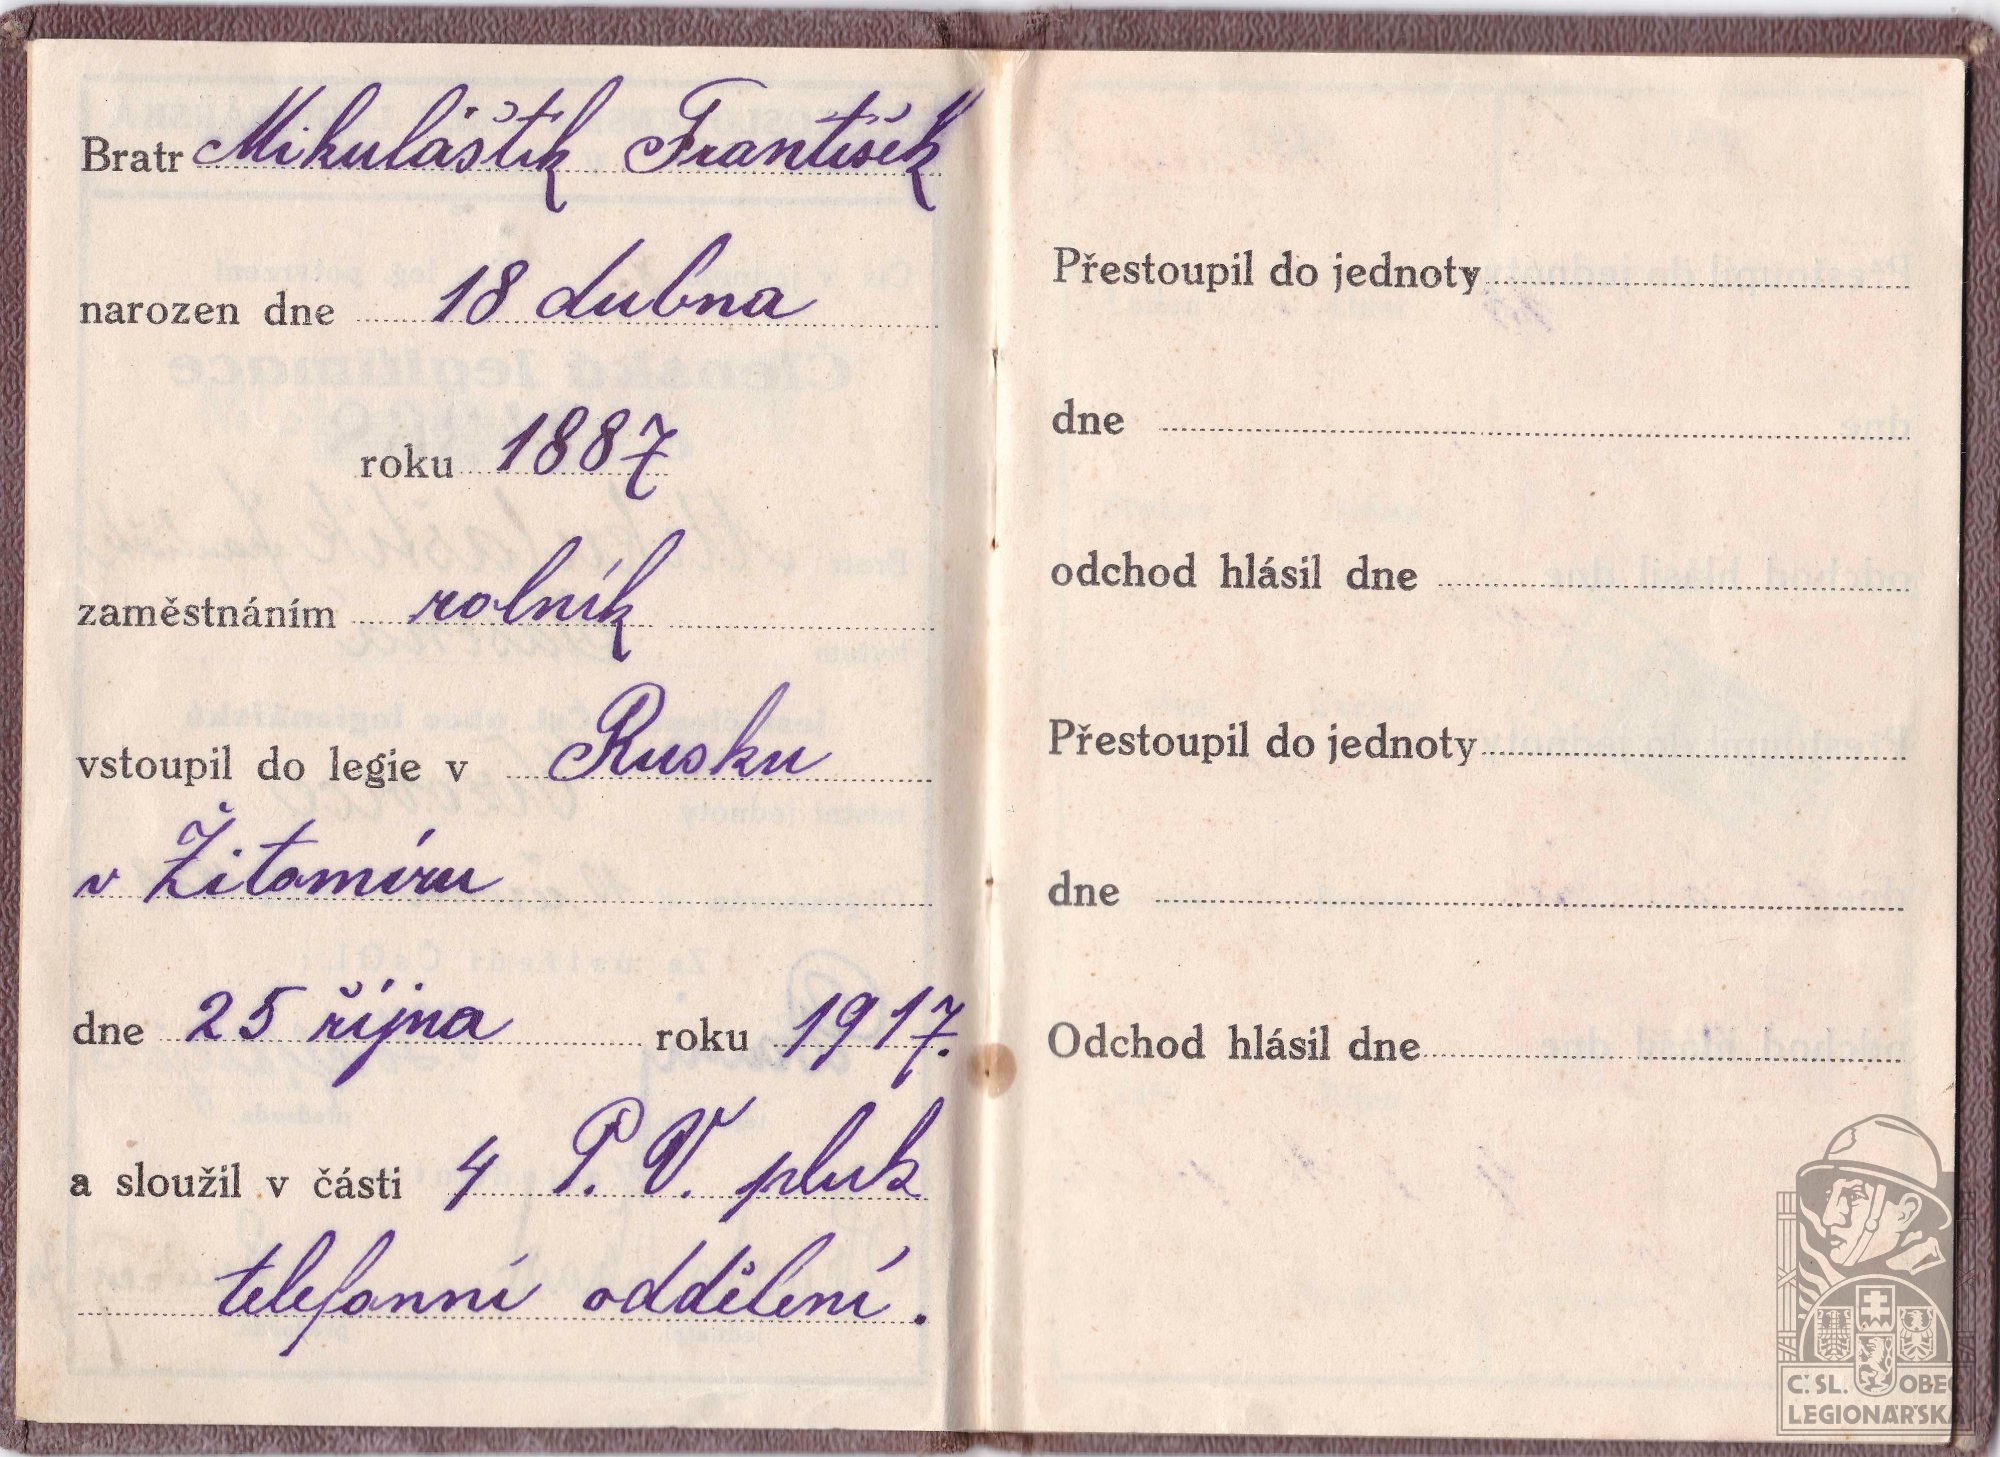 Bratr Mikuláštík František
narozen dne 18 dubna
roku 1887
zaměstnáním rolník
vstoupil do legie v Rusku
v Žitomíru
dne 25 října roku 1917.
a sloužil v části 4 P. V. pluk
telefonní oddělení.
Přestoupil do jednoty
dne
odchod hlásil dne
Přestoupil do jednoty
dne
Odchod hlásil dne
Č.SL. OBEC
LEGIONÁŘSKÁ